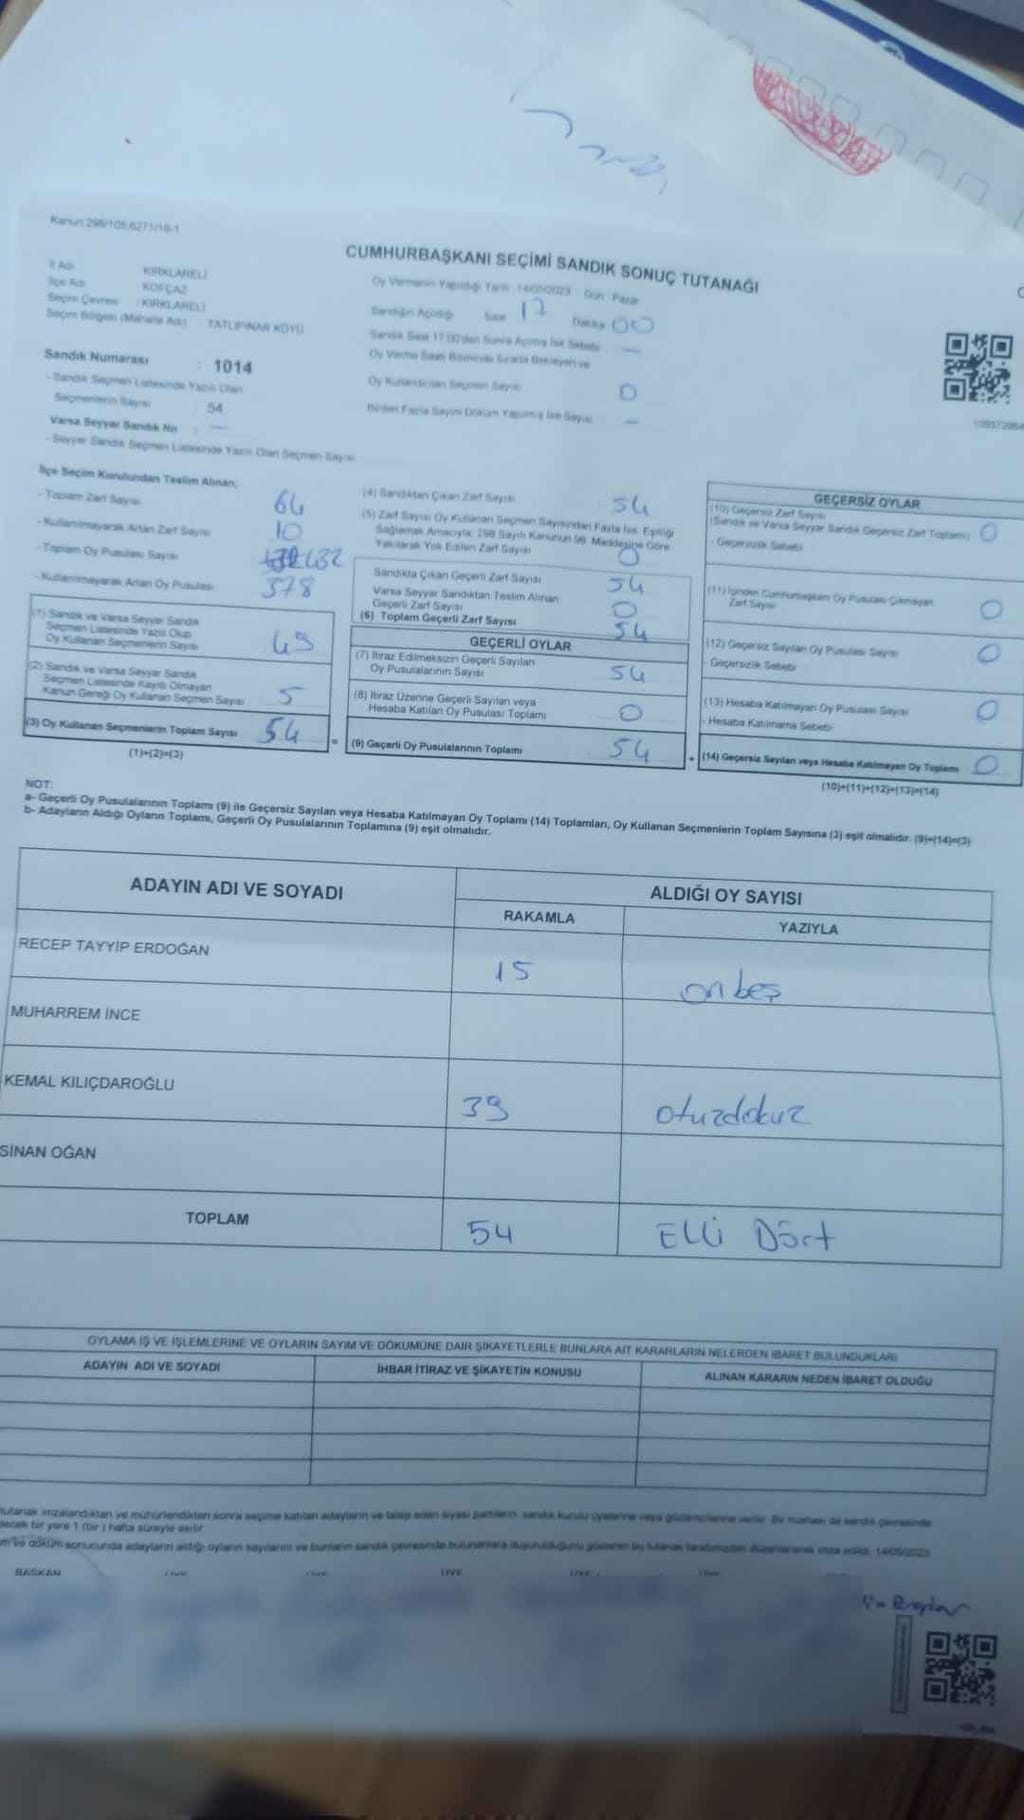 Kanun 298/105,6271/16-1
CUMHURBAŞKANI SEÇİMİ SANDIK SONUÇ TUTANAĞI
İl Adı KIRKLARELİ
İlçe Adı KOFÇAZ
Seçim Çevresi : KIRKLARELİ
Seçim Bölgesi (Mahalle Adı) : TATLIPINAR KÖYÜ
Oy Vermenin Yapıldığı Tarih 14/05/2023 Gün Pazar
Sandığın Açıldığı Saat 17 Dakika 00
Sandık Saat 17:00'den Sonra Açılmış İse Sebebi —
Oy Verme Saati Bitiminde Sırada Bekleyen ve
Oy Kullandırılan Seçmen Sayısı 0
Birden Fazla Sayım Döküm Yapılmış İse Sayısı —
Sandık Numarası : 1014
- Sandık Seçmen Listesinde Yazılı Olan
Seçmenlerin Sayısı 54
Varsa Seyyar Sandık No : —
- Seyyar Sandık Seçmen Listesinde Yazılı Olan Seçmen Sayısı
İlçe Seçim Kurulundan Teslim Alınan;
- Toplam Zarf Sayısı 64
- Kullanılmayarak Artan Zarf Sayısı 10
- Toplam Oy Pusulası Sayısı 432
- Kullanılmayarak Artan Oy Pusulası 378
(1) Sandık ve Varsa Seyyar Sandık
Seçmen Listesinde Yazılı Olup
Oy Kullanan Seçmenlerin Sayısı 49
(2) Sandık ve Varsa Seyyar Sandık
Seçmen Listesinde Kayıtlı Olmayan
Kanun Gereği Oy Kullanan Seçmen Sayısı 5
(3) Oy Kullanan Seçmenlerin Toplam Sayısı 54
(1)+(2)=(3)
(4) Sandıktan Çıkan Zarf Sayısı 54
(5) Zarf Sayısı Oy Kullanan Seçmen Sayısından Fazla İse, Eşitliği
Sağlamak Amacıyla, 298 Sayılı Kanunun 98. Maddesine Göre
Yakılarak Yok Edilen Zarf Sayısı 0
Sandıkta Çıkan Geçerli Zarf Sayısı 54
Varsa Seyyar Sandıktan Teslim Alınan
Geçerli Zarf Sayısı 0
(6) Toplam Geçerli Zarf Sayısı 54
GEÇERLİ OYLAR
(7) İtiraz Edilmeksizin Geçerli Sayılan
Oy Pusulalarının Sayısı 54
(8) İtiraz Üzerine Geçerli Sayılan veya
Hesaba Katılan Oy Pusulası Toplamı 0
(9) Geçerli Oy Pusulalarının Toplamı 54
GEÇERSİZ OYLAR
(10) Geçersiz Zarf Sayısı
(Sandık ve Varsa Seyyar Sandık Geçersiz Zarf Toplamı) 0
- Geçersizlik Sebebi
(11) İçinden Cumhurbaşkanı Oy Pusulası Çıkmayan
Zarf Sayısı 0
(12) Geçersiz Sayılan Oy Pusulası Sayısı 0
- Geçersizlik Sebebi
(13) Hesaba Katılmayan Oy Pusulası Sayısı 0
- Hesaba Katılmama Sebebi
(14) Geçersiz Sayılan veya Hesaba Katılmayan Oy Toplamı 0
(10)+(11)+(12)+(13)=(14)
NOT:
a- Geçerli Oy Pusulalarının Toplamı (9) ile Geçersiz Sayılan veya Hesaba Katılmayan Oy Toplamı (14) Toplamları, Oy Kullanan Seçmenlerin Toplam Sayısına (3) eşit olmalıdır. (9)+(14)=(3)
b- Adayların Aldığı Oyların Toplamı, Geçerli Oy Pusulalarının Toplamına (9) eşit olmalıdır.
ADAYIN ADI VE SOYADI ALDIĞI OY SAYISI
RAKAMLA YAZIYLA
RECEP TAYYİP ERDOĞAN 15 on beş
MUHARREM İNCE
KEMAL KILIÇDAROĞLU 39 otuzdokuz
SİNAN OĞAN
TOPLAM 54 Elli Dört
OYLAMA İŞ VE İŞLEMLERİNE VE OYLARIN SAYIM VE DÖKÜMÜNE DAİR ŞİKAYETLERLE BUNLARA AİT KARARLARIN NELERDEN İBARET BULUNDUKLARI
ADAYIN ADI VE SOYADI İHBAR İTİRAZ VE ŞİKAYETİN KONUSU ALINAN KARARIN NEDEN İBARET OLDUĞU
tutanak imzalandıktan ve mühürlendikten sonra seçime katılan adayların ve talep eden siyasi partilerin sandık kurulu üyelerine veya gözlemcilerine verilir. Bir nüshası da sandık çevresinde
lecek bir yere 1 (bir) hafta süreyle asılır
m ve döküm sonucunda adayların aldığı oyların sayılarını ve bunların sandık çevresinde bulunanlara duyurulduğunu gösteren bu tutanak tarafımızdan düzenlenerek imza edildi. 14/05/2023
BAŞKAN ÜYE ÜYE ÜYE ÜYE ÜYE